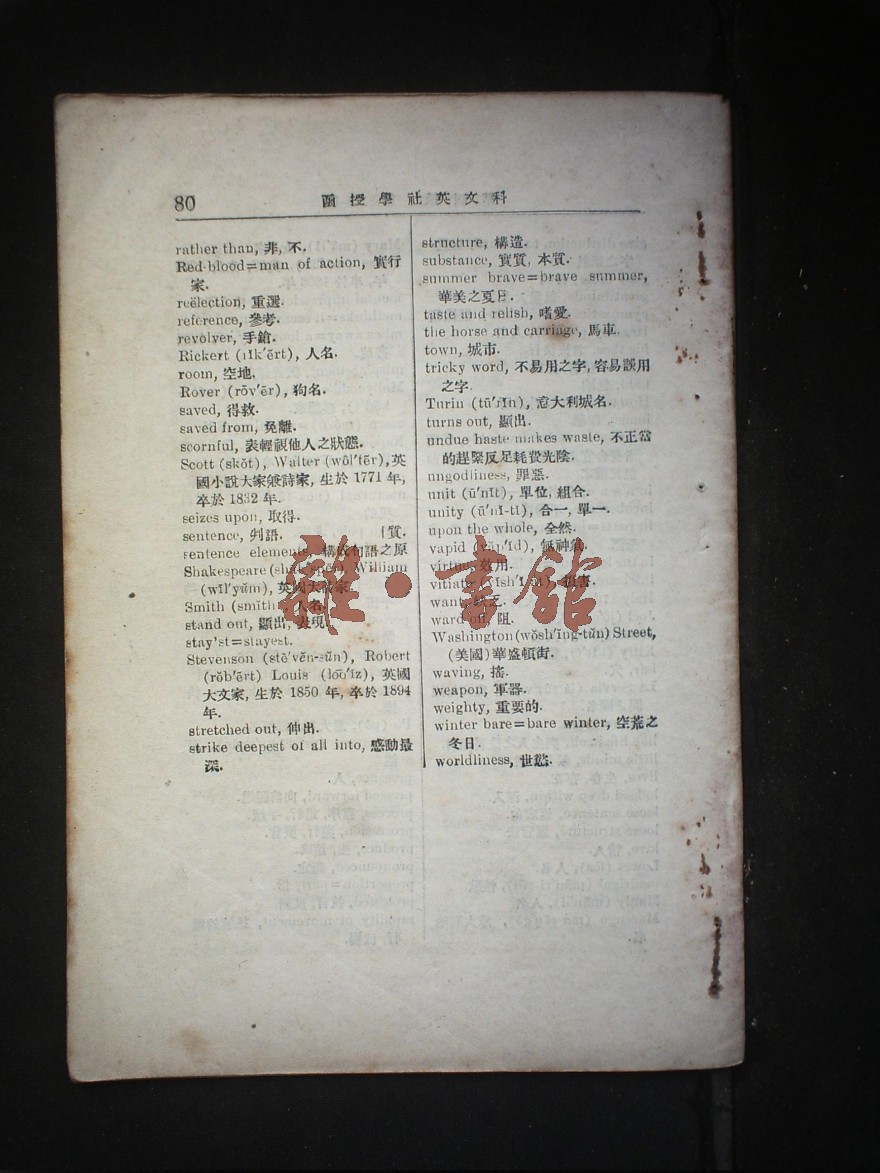 80
科文英社學授函
rather than, 非, 不.
Red-blood=man of action, 實行
家.
reëlection, 重選.
reference, 參考.
revolver, 手鎗.
Rickert (rĭk′ẽrt), 人名.
room, 空地.
Rover (rōv′ẽr), 狗名.
saved, 得救.
saved from, 免離.
scornful, 表輕視他人之狀態.
Scott (skŏt), Walter (wôl′tẽr), 英
國小說大家兼詩家, 生於 1771 年,
卒於 1832 年.
seizes upon, 取得.
sentence, 判語. [質.
sentence elements, 構成句語之原
Shakespeare (shāk′spēr), William
(wĭl′yŭm), 英國大戲家.
Smith (smĭth), 人名.
stand out, 顯出, 表現.
stay'st=stayest.
Stevenson (stē′vĕn-sŭn), Robert
(rŏb′ẽrt) Louis (lōō′ĭz), 英國
大文家, 生於 1850 年, 卒於 1894
年.
stretched out, 伸出.
strike deepest of all into, 感動最
深.
structure, 構造.
substance, 實質, 本質.
summer brave=brave summer,
華美之夏日.
taste and relish, 嗜愛.
the horse and carriage, 馬車.
town, 城市.
tricky word, 不易用之字, 容易誤用
之字.
Turin (tū′rĭn), 意大利城名.
turns out, 顯出.
undue haste makes waste, 不正當
的趕緊反足耗費光陰.
ungodliness, 罪惡.
unit (ū′nĭt), 單位, 組合.
unity (ū′nĭ-tĭ), 合一, 單一.
upon the whole, 全然.
vapid (văp′ĭd), 無神氣.
virtue, 效用.
vitiate (vĭsh′ĭ-āt), 損害.
want, 缺乏.
ward off, 阻.
Washington (wŏsh′ĭng-tŭn) Street,
(美國) 華盛頓街.
waving, 搖.
weapon, 軍器.
weighty, 重要的.
winter bare=bare winter, 空荒之
冬日.
worldliness, 世慾.
雜·書館